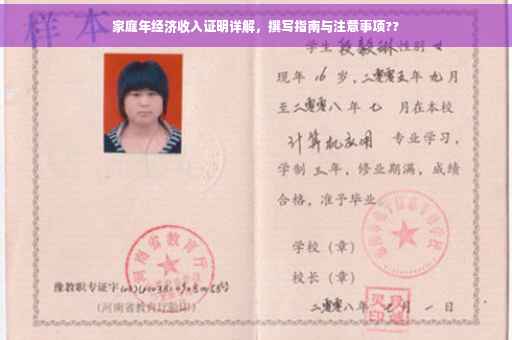 家庭年经济收入证明详解，撰写指南与注意事项??
样本
学生段毅琳性别女
现年16岁，二零零五年九月
至二零零八年七月在本校
计算机应用 专业学习，
学制三年，修业期满，成绩
合格，准予毕业。
学校（章）
校长（章）
二零零八年七月一日
河南省教育厅
豫教职专证字
(河南省教育厅验印)